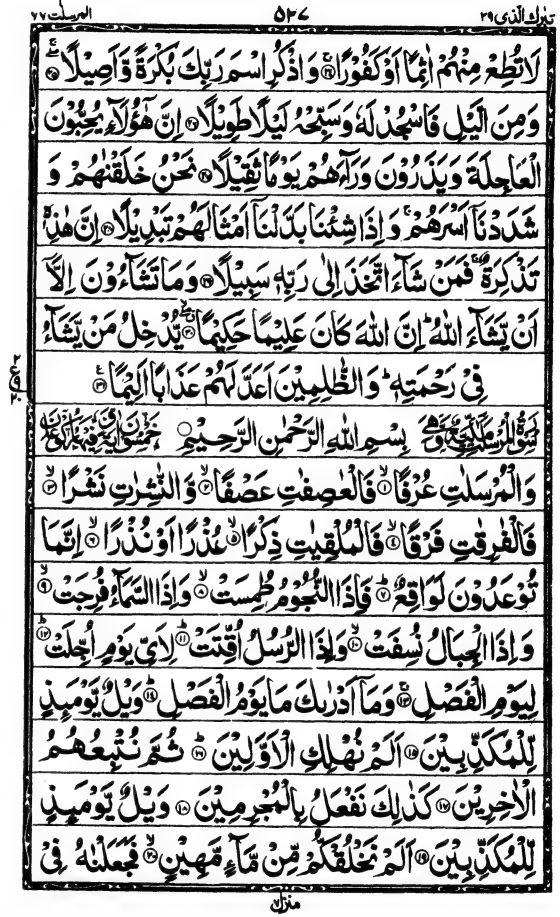 تبٰرك الذی ٢٩ ٥٢٧ المرسلت ٧٧
لَا تُطِعْ مِنْهُمْ اٰثِمًا اَوْ كَفُوْرًا ۚ﴿٢٤﴾ وَاذْكُرِ اسْمَ رَبِّكَ بُكْرَةً وَّاَصِيْلًا ۖۚ﴿٢٥﴾
وَمِنَ الَّيْلِ فَاسْجُدْ لَهٗ وَسَبِّحْهُ لَيْلًا طَوِيْلًا ﴿٢٦﴾ اِنَّ هٰۤؤُلَآءِ يُحِبُّوْنَ
الْعَاجِلَةَ وَيَذَرُوْنَ وَرَآءَهُمْ يَوْمًا ثَقِيْلًا ﴿٢٧﴾ نَحْنُ خَلَقْنٰهُمْ وَ
شَدَدْنَاۤ اَسْرَهُمْ ۚ وَاِذَا شِئْنَا بَدَّلْنَاۤ اَمْثَالَهُمْ تَبْدِيْلًا ﴿٢٨﴾ اِنَّ هٰذِهٖ
تَذْكِرَةٌ ۚ فَمَنْ شَآءَ اتَّخَذَ اِلٰى رَبِّهٖ سَبِيْلًا ﴿٢٩﴾ وَمَا تَشَآءُوْنَ اِلَّاۤ
اَنْ يَّشَآءَ اللّٰهُ ؕ اِنَّ اللّٰهَ كَانَ عَلِيْمًا حَكِيْمًا ۗۖ﴿٣٠﴾ يُّدْخِلُ مَنْ يَّشَآءُ
فِيْ رَحْمَتِهٖ ؕ وَالظّٰلِمِيْنَ اَعَدَّ لَهُمْ عَذَابًا اَلِيْمًا ﴿٣١﴾
بِسْمِ اللّٰهِ الرَّحْمٰنِ الرَّحِيْمِ
وَالْمُرْسَلٰتِ عُرْفًا ۙ﴿١﴾ فَالْعٰصِفٰتِ عَصْفًا ۙ﴿٢﴾ وَّالنّٰشِرٰتِ نَشْرًا ۙ﴿٣﴾
فَالْفٰرِقٰتِ فَرْقًا ۙ﴿٤﴾ فَالْمُلْقِيٰتِ ذِكْرًا ۙ﴿٥﴾ عُذْرًا اَوْ نُذْرًا ۙ﴿٦﴾ اِنَّمَا
تُوْعَدُوْنَ لَوَاقِعٌ ؕ﴿٧﴾ فَاِذَا النُّجُوْمُ طُمِسَتْ ۙ﴿٨﴾ وَاِذَا السَّمَآءُ فُرِجَتْ ۙ﴿٩﴾
وَاِذَا الْجِبَالُ نُسِفَتْ ۙ﴿١٠﴾ وَاِذَا الرُّسُلُ اُقِّتَتْ ؕ﴿١١﴾ لِاَيِّ يَوْمٍ اُجِّلَتْ ؕ﴿١٢﴾
لِيَوْمِ الْفَصْلِ ۚ﴿١٣﴾ وَمَاۤ اَدْرٰىكَ مَا يَوْمُ الْفَصْلِ ؕ﴿١٤﴾ وَيْلٌ يَّوْمَىِٕذٍ
لِّلْمُكَذِّبِيْنَ ﴿١٥﴾ اَلَمْ نُهْلِكِ الْاَوَّلِيْنَ ؕ﴿١٦﴾ ثُمَّ نُتْبِعُهُمُ
الْاٰخِرِيْنَ ﴿١٧﴾ كَذٰلِكَ نَفْعَلُ بِالْمُجْرِمِيْنَ ﴿١٨﴾ وَيْلٌ يَّوْمَىِٕذٍ
لِّلْمُكَذِّبِيْنَ ﴿١٩﴾ اَلَمْ نَخْلُقْكُّمْ مِّنْ مَّآءٍ مَّهِيْنٍ ۙ﴿٢٠﴾ فَجَعَلْنٰهُ فِيْ
منزل ٧